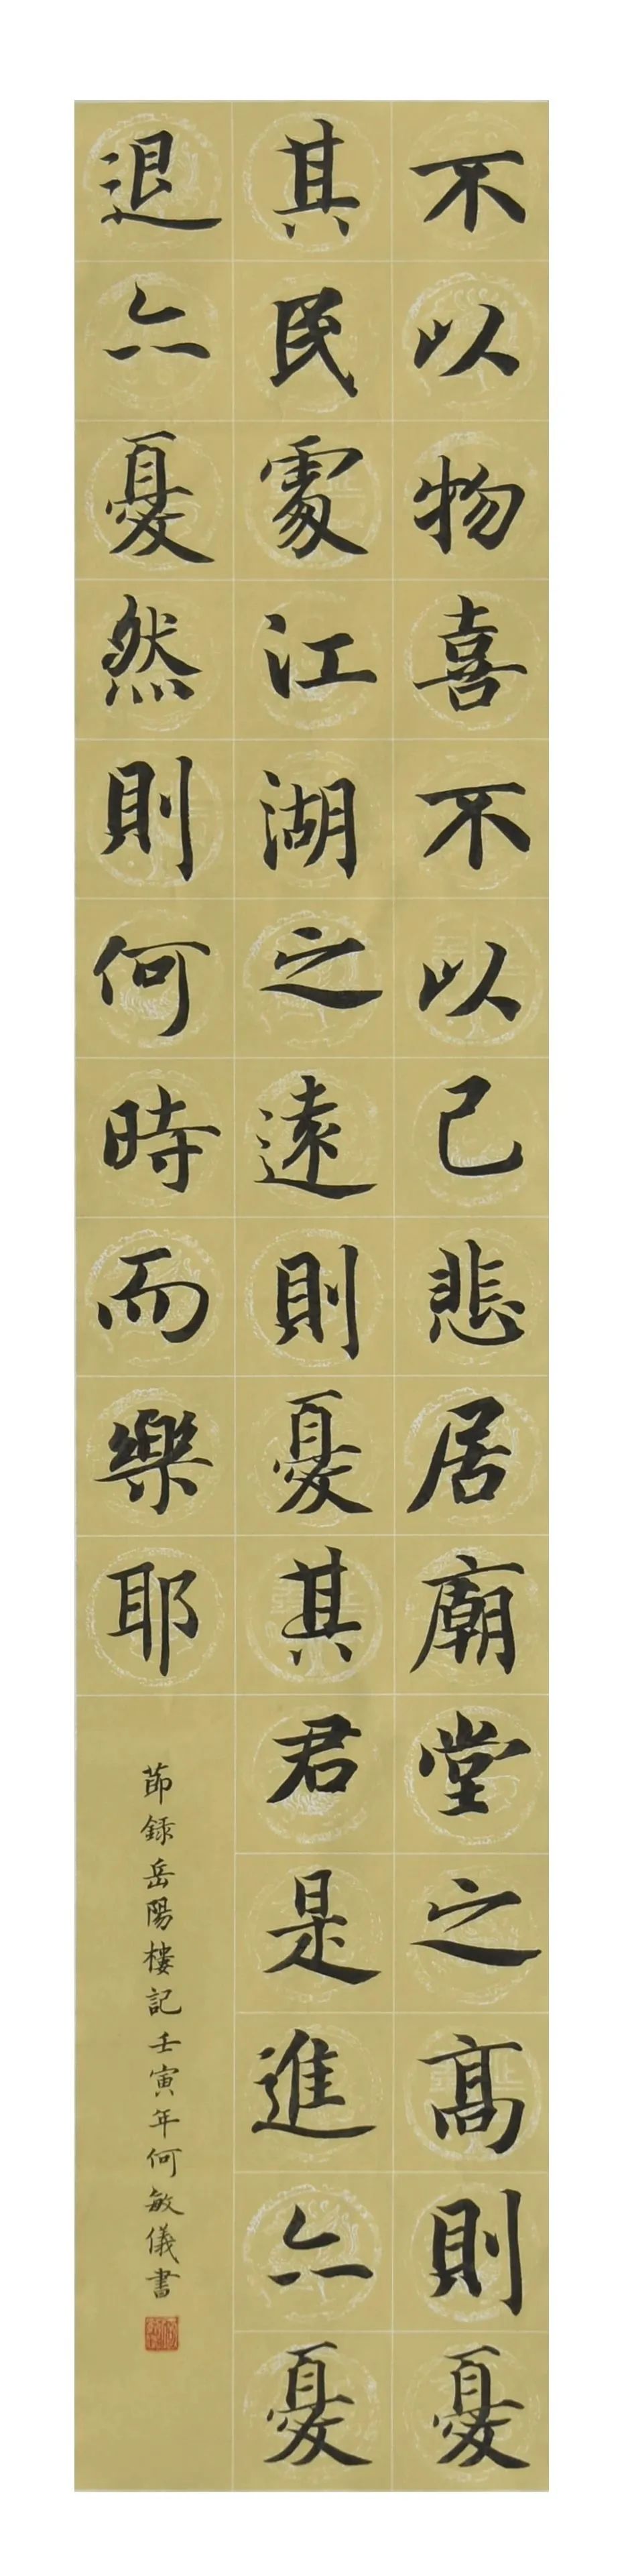 不以物喜不以己悲居廟堂之高則憂
其民處江湖之遠則憂其君是進亦憂
退亦憂然則何時而樂耶
節錄岳陽樓記壬寅年何敏儀書